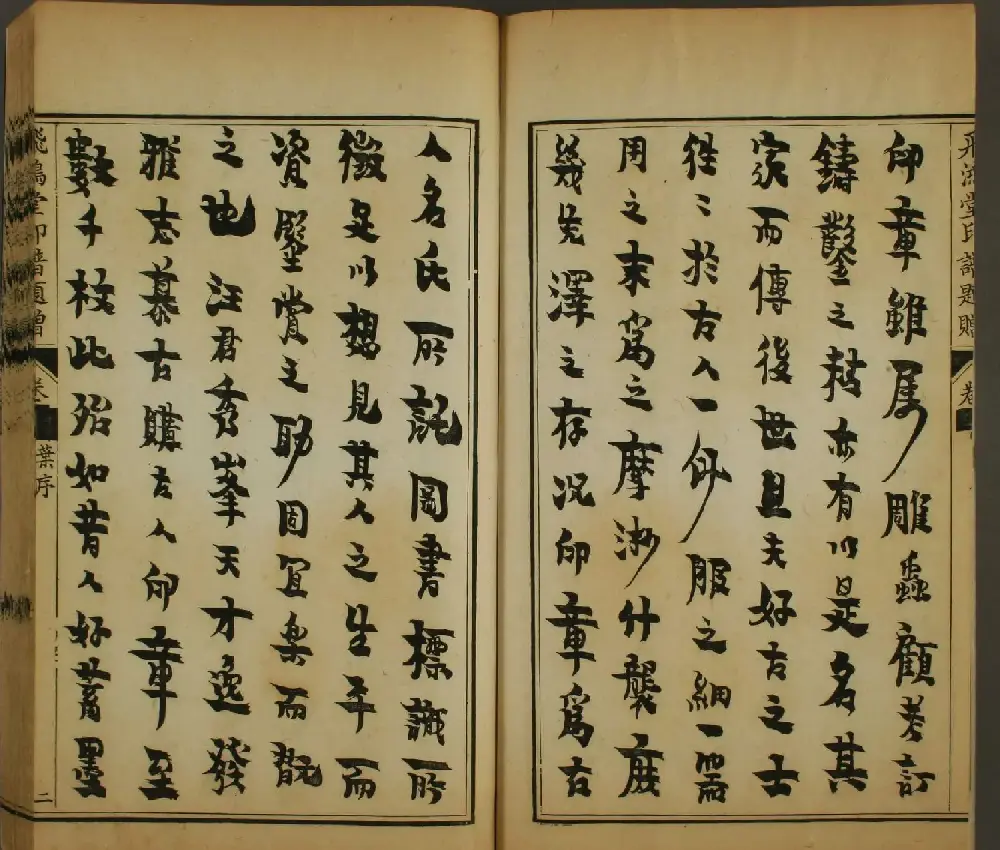 飛鴻堂印譜題贈
卷
印章雖屬雕蟲顧考訂
鑄鑿之精亦有以是名其
家而傳後世且夫好古之士
徃〻於古人一介服之細一器
用之末爲之摩沙什襲庶
幾先澤之存況印章爲古
人名氏所託圖書標識所
徵足以想見其人之生平而
資鑒賞之助固宜樂而翫
之也汪君秀峯天才逸發
雅志慕古購古人印章至
數千枚此殆如昔人好蓄墨
飛鴻堂印譜題贈
卷
葉序
二